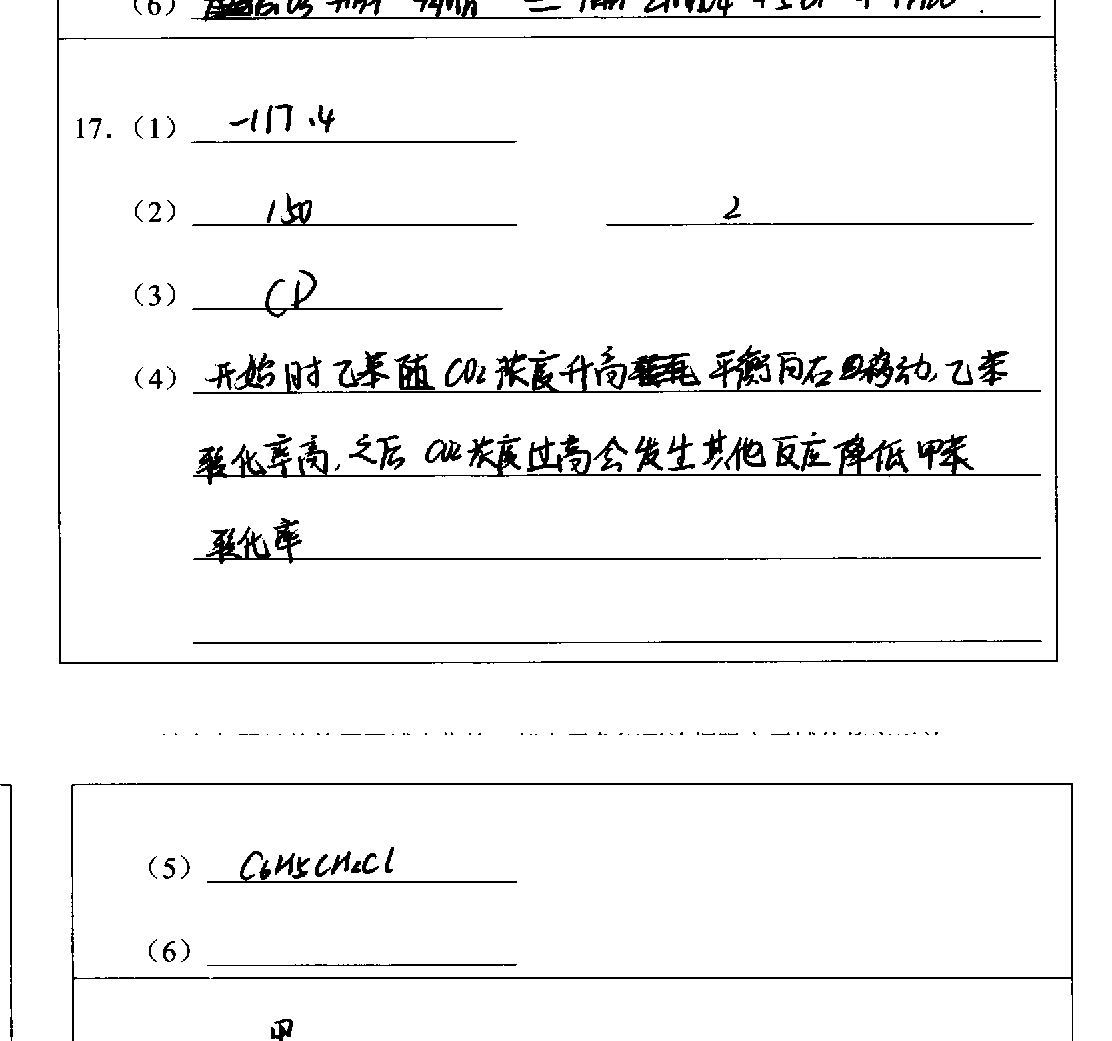 (6)
17. (1) -117.4
(2) 150 2
(3) CD
(4) 开始时乙苯随 CO2 浓度升高 平衡向右移动, 乙苯
转化率高, 之后 CO2 浓度过高会发生其他反应降低甲苯
转化率
(5) C6H5CH2Cl
(6)
甲